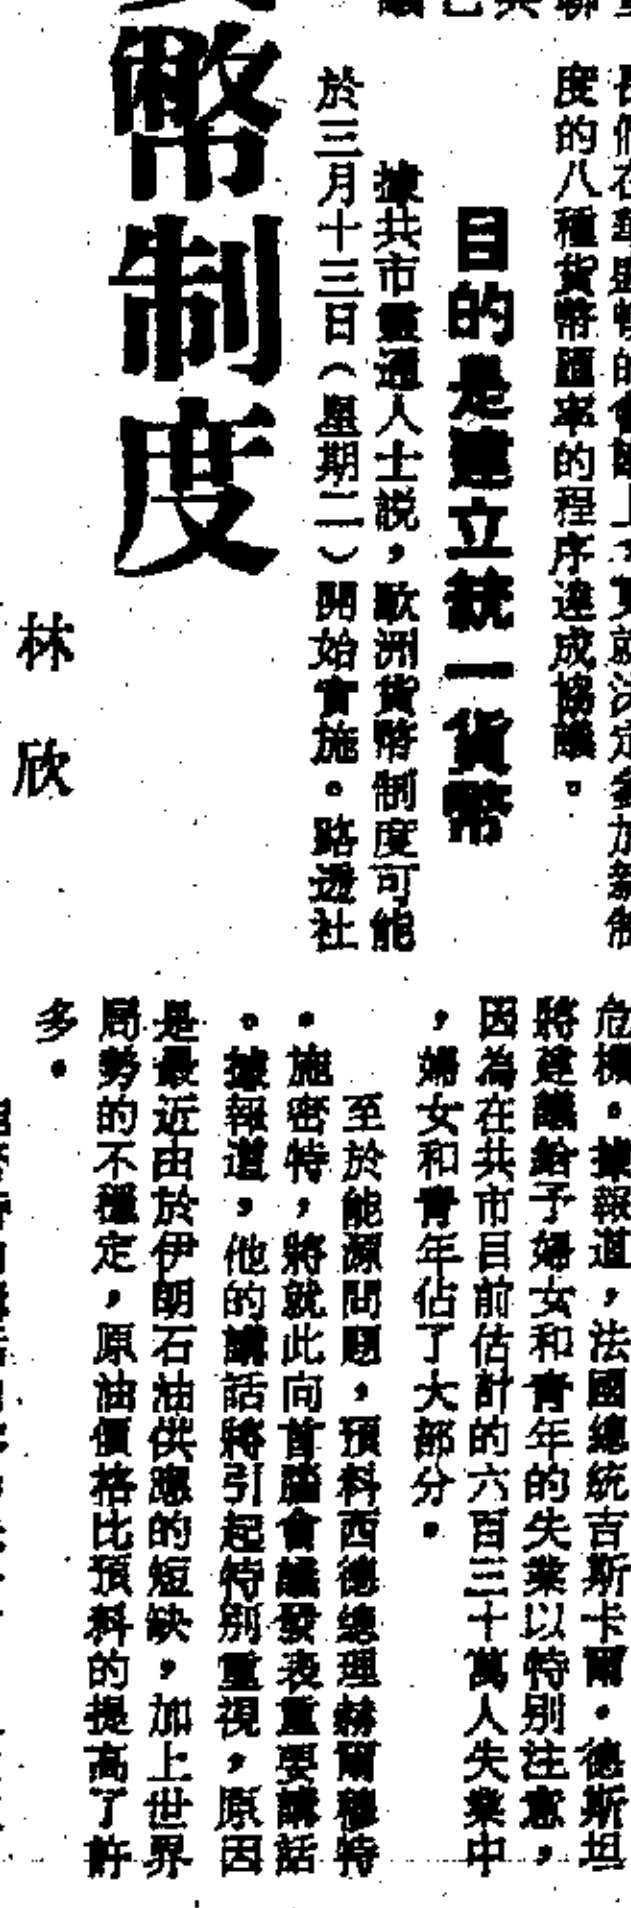 幣制度
林欣
度的八種貨幣匯率的程序達成協議。
目的是建立統一貨幣
據共市靈通人士説，歐洲貨幣制度可能
於三月十三日（星期二）開始實施。路透社
危機。據報道，法國總統吉斯卡爾・德斯坦
將建議給予婦女和青年的失業以特別注意，
因為在共市目前估計的六百三十萬人失業中
，婦女和青年佔了大部分。
至於能源問題，預料西德總理赫爾穆特
・施密特，將就此向首腦會議發表重要講話
。據報道，他的講話將引起特別重視，原因
是最近由於伊朗石油供應的短缺，加上世界
局勢的不穩定，原油價格比預料的提高了許
多。